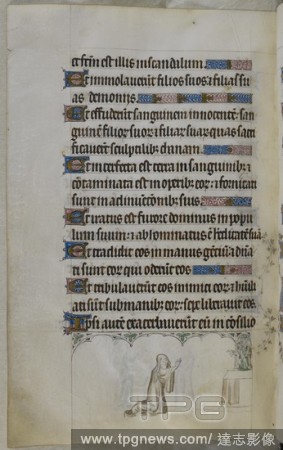 et fcm est illis in scandalum.
Et immolauerunt filios suos et filias su
as demonijs.
Et effuderunt sanguinem innocentem san
guinem filiorum suorum et filiarum suarum quas sacri
ficauerunt sculptilibus chanaan.
Et infecta est terra in sanguinibus et
cõtaminata est in operibus eorum et fornicati
sunt in adinuentionibus suis.
Et iratus est furore dominus in popu
lum suum et abhominatus est hereditatem suam
Et tradidit eos in manus gentium et dñati
sunt eorum qui oderunt eos
Et tribulauerunt eos inimici eorum et humili
ati sunt sub manibus eorum sepe liberauit eos
Ipsi autem exacerbauerunt eum in consilio
TPG
www.tpgnews.com / 達志影像